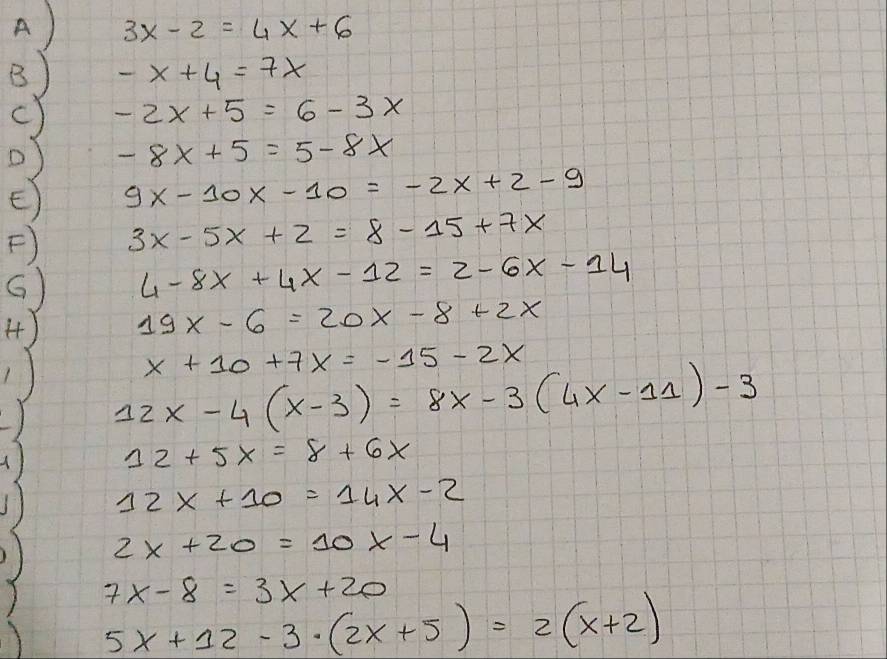 A) 3x - 2 = 4x + 6
B) - x + 4 = 7x
C) - 2x + 5 = 6 - 3x
D) - 8x + 5 = 5 - 8x
E) 9x - 10x - 10 = - 2x + 2 - 9
F) 3x - 5x + 2 = 8 - 15 + 7x
G) 4 - 8x + 4x - 12 = 2 - 6x - 14
H) 19x - 6 = 20x - 8 + 2x
) x + 10 + 7x = - 15 - 2x
) 12x - 4 (x - 3) = 8x - 3 (4x - 11) - 3
) 12 + 5x = 8 + 6x
) 12x + 10 = 14x - 2
) 2x + 20 = 10x - 4
) 7x - 8 = 3x + 20
) 5x + 12 - 3 · (2x + 5) = 2 (x + 2)